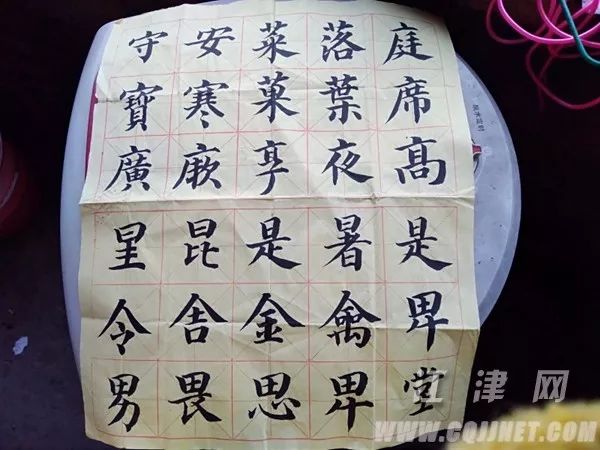 守安菜落庭
寶寒菓葉席
廣享夜高
星昆是暑是
令舍金禽卑
男畏思卑堂
江津网
WWW.CQJJNET.COM